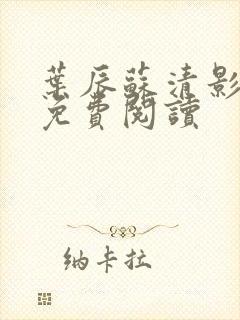 葉辰蘇清影
免費閱讀
纳卡拉